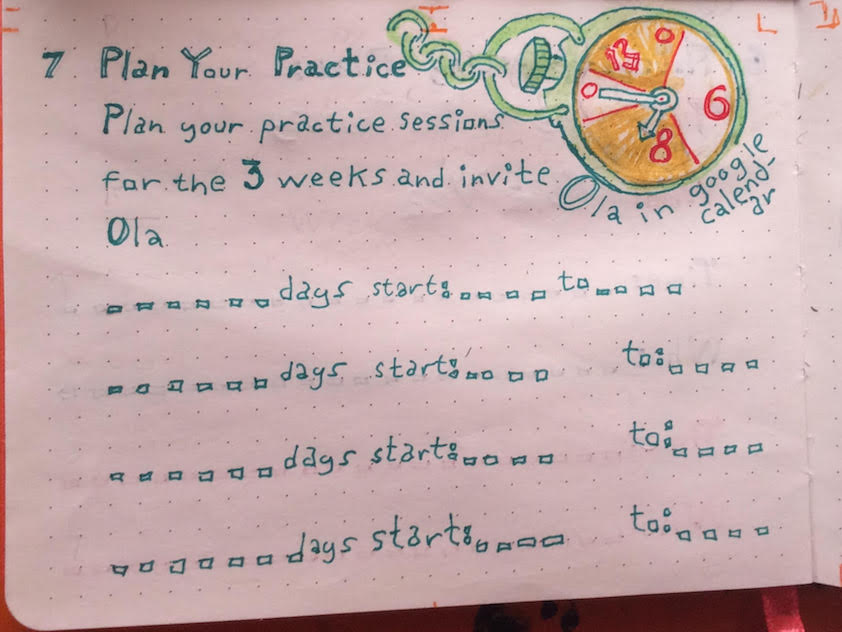 7 Plan Your Practice
Plan your practice sessions
for the 3 weeks and invite
Ola
Ola in google
calend-
ar
0
6
8
0
days start: to
days start: to:
days start: to:
days start: to: